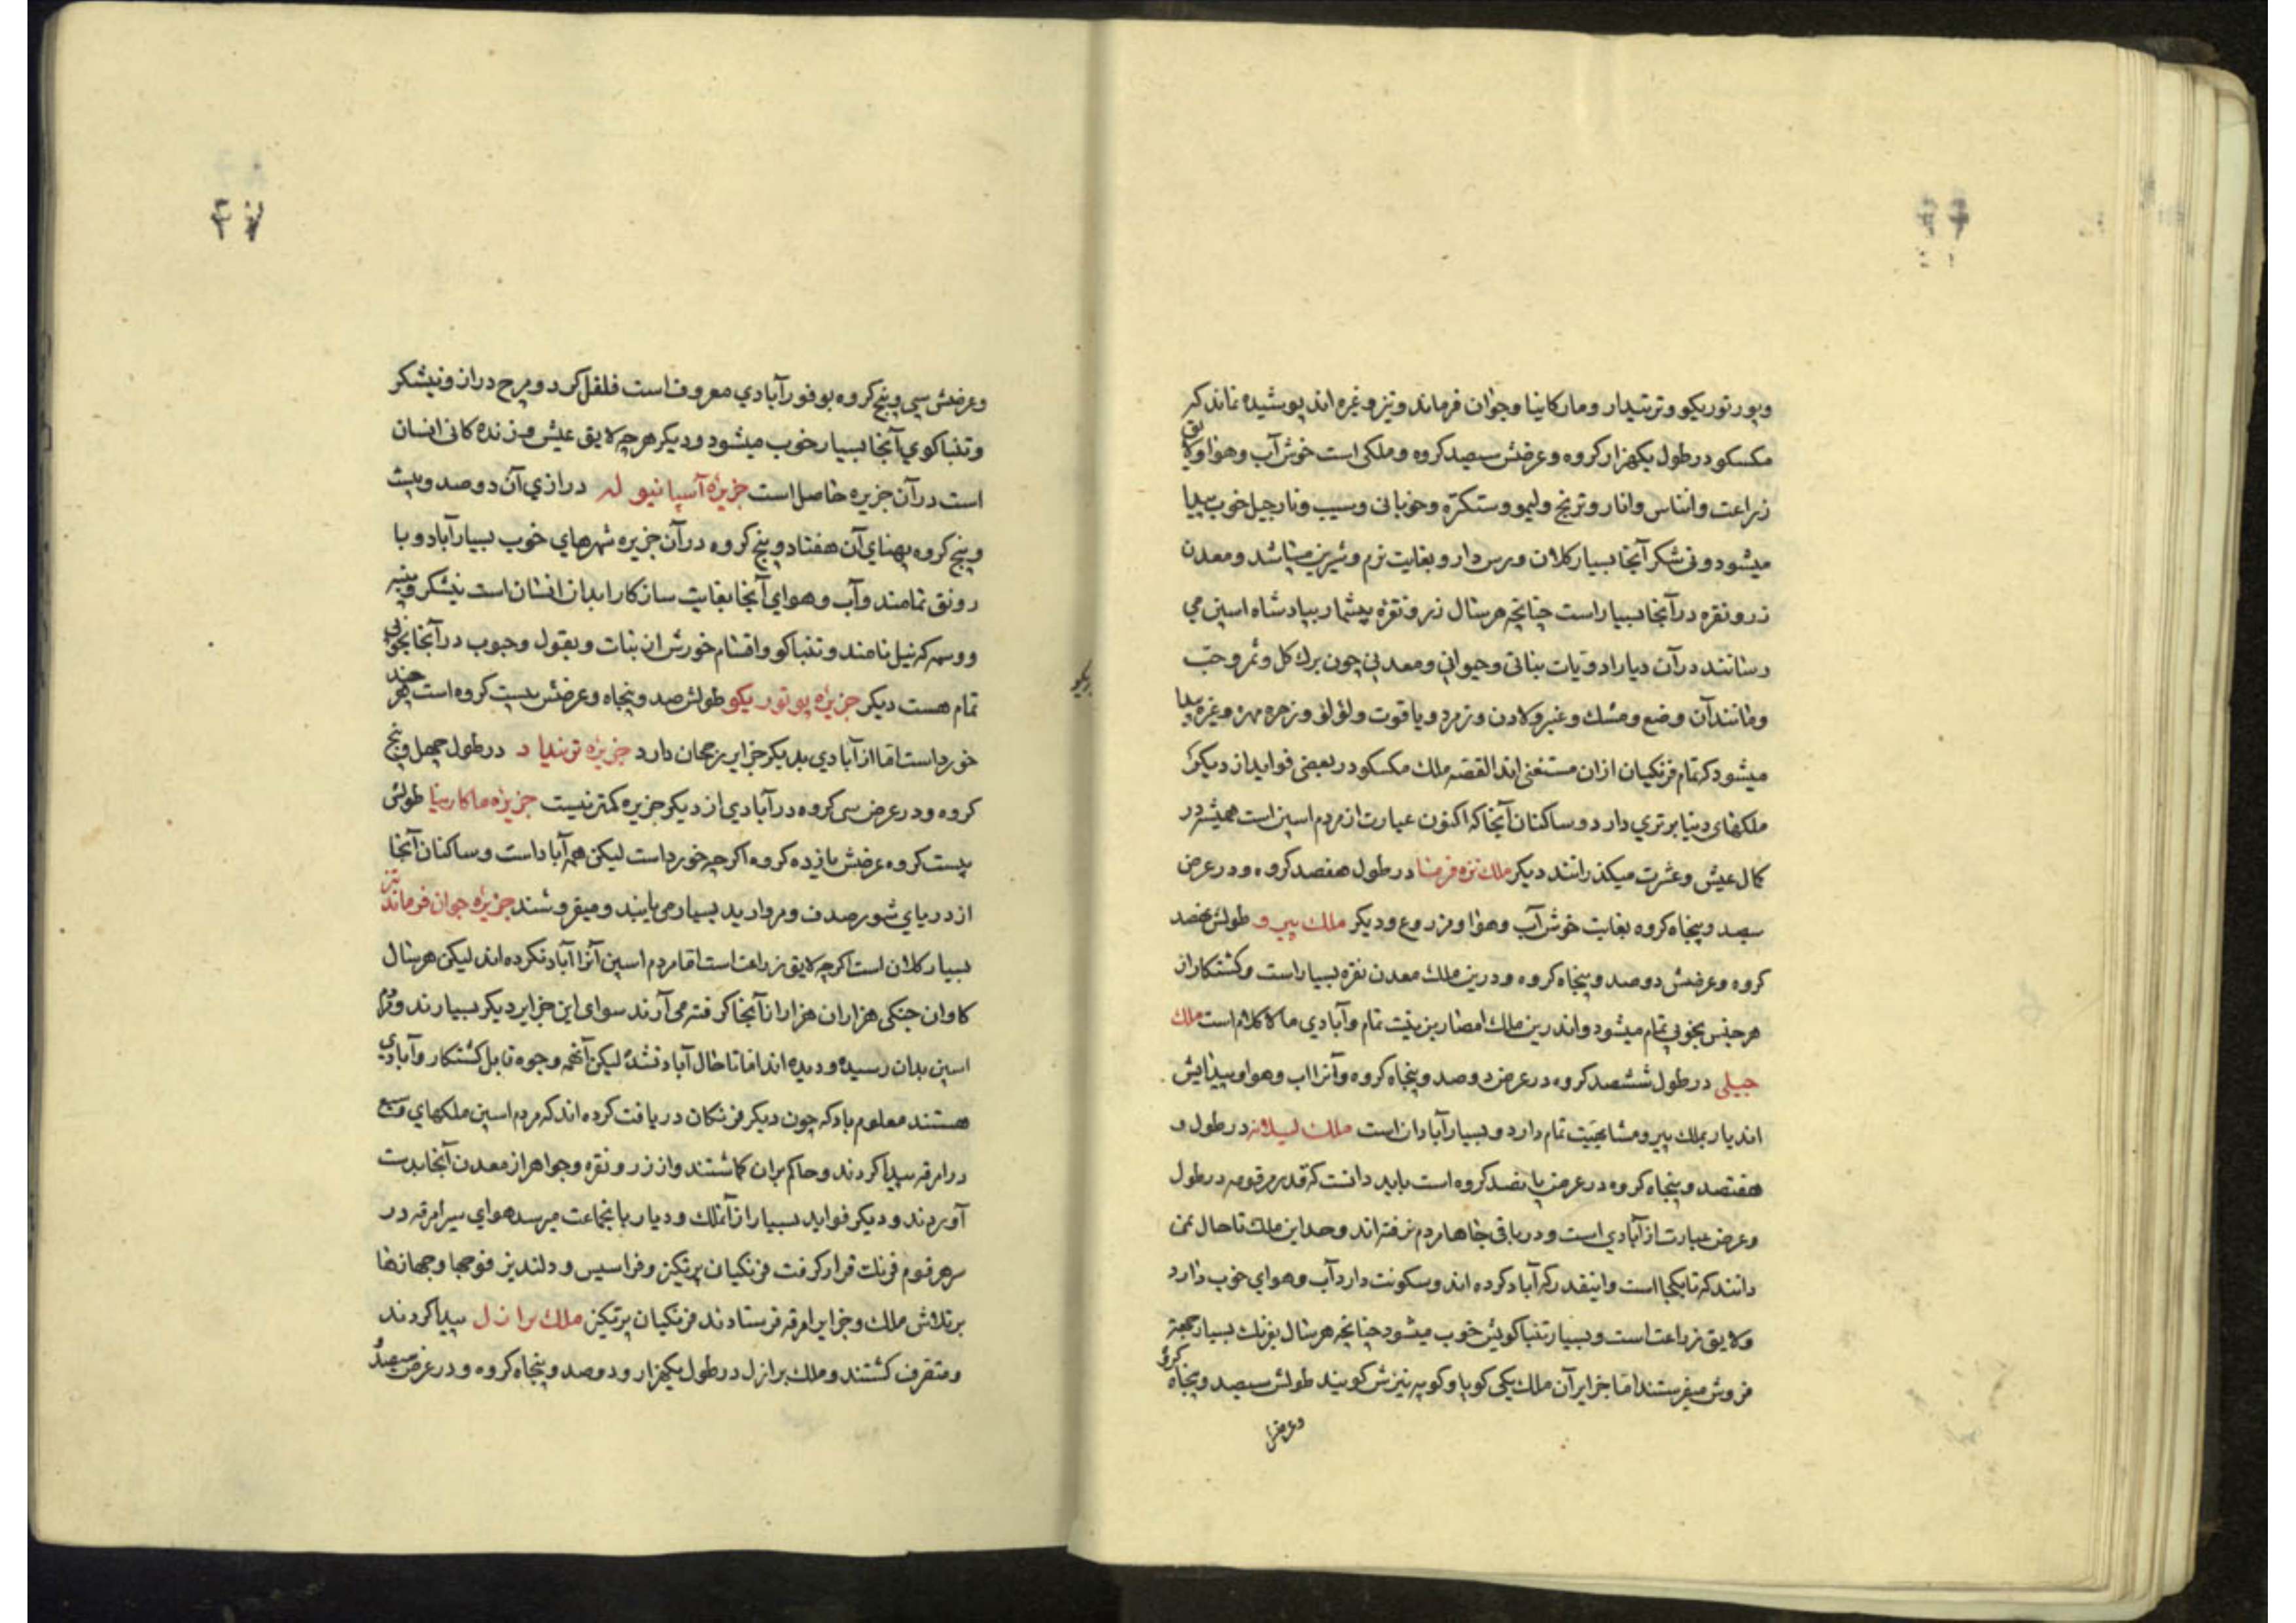 وپورتوریکو وترتیدار ومارکانیا وجوان فرماند ونیز وغره اند پوشیده نماند که
مکسکو درطول یکهزار کروه وعرضش سیصد کروه وملکی است خوش آب وهوا ولایق
زراعت وانناس وانار وترنج ولیمو وسنکتره وخوبانی وسیب ونارجیل خوب پیدا
میشود ونی شکر آنجا بسیار کلان ورس دار وبغایت نرم وشیرین میباشد ومعدن
زر ونقره درآنجا بسیار است چنانچه هرسال زر ونقره بیشمار بپادشاه اسپن می
رسانند درآن دیار ادویات نباتی وحیوانی ومعدنی چون برك کل وثمر وحب
ومانند آن وضع ومشك وعنبر ولادن وزمرد ویاقوت ولؤلؤ وزهره مهره وغره پیدا
میشود که تمام فرنکیان ازان مستغنی اند القصه ملك مکسکو دربعضی فواید از دیکر
ملکهای دنیا برتری دارد وساکنان آنجا که اکنون عبارت از مردم اسپن است همیشه در
کمال عیش وعشرت میکذرانند دیکر ملك تره فرما درطول هفصد کروه ودرعرض
سیصد وپنجاه کروه بغایت خوش آب وهوا ومزروع ودیکر ملك پیرو طولش نهصد
کروه وعرضش دوصد وپنجاه کروه ودرین ملك معدن نقره بسیار است وکشتکار از
هرجنس بخوبی تمام میشود واندرین ملك امصار بزینت تمام وآبادی مالاکلام است ملك
جیلی درطول ششصد کروه درعرض دوصد وپنجاه کروه وآنرا اب وهوا وپیدایش
اندیار بملك پیرو مشابهیت تمام دارد وبسیار آبادان است ملك لیلانه درطول و
هفتصد وپنجاه کروه درعرض پانصد کروه است باید دانست که قدر مرقومه درطول
وعرض عبارت از آبادی است ودرباقی جاها مردم نرفته اند وحد این ملك تاحال نمی
دانند که تابکجا است واینقدر که آباد کرده اند وسکونت دارد آب وهوای خوب دارد
ولایق زراعت است وبسیار تنباکوئیش خوب میشود چنانچه هرسال بفرنك بسیار بجهته
فروش میفرستند اما جزایر آن ملك یکی کوبا وکوبه نیزش کویند طولش سیصد وپنجاه کروه
وعرضش
وعرضش سی وپنج کروه بوفور آبادی معروف است فلفل کرد ومرح دران ونیشکر
وتنباکوی آنجا بسیار خوب میشود ودیکر هرچه لایق عیش وزنده کانی انسان
است درآن جزیره حاصل است جزیره آسپانیوله درازی آن دوصد وبیست
وپنج کروه پهنای آن هفتاد وپنج کروه درآن جزیره شهرهای خوب بسیار آباد وبا
رونق تمامند وآب وهوای آنجا بغایت سازکار ابدان انسان است نیشکر وپنبه
ووسمه که نیل نامند وتنباکو واقسام خورش از نبات وبقول وحبوب درآنجا بخوبی
تمام هست دیکر جزیره پوتوریکو طولش صد وپنجاه وعرضش بیست کروه است هرچند
خورد است اما از آبادی بدیکر جزایر رجحان دارد جزیره ترنیداد درطول چهل وپنج
کروه ودرعرض سی کروه درآبادی از دیکر جزیره کمتر نیست جزیره ماکاریتا طولش
بیست کروه عرضش پانزده کروه اکرچه خورد است لیکن همه آباد است وساکنان آنجا
از دریای شور صدف ومروارید بسیار می یابند ومیفروشند جزیره جوان فرماندنیز
بسیار کلان است اکرچه لایق زراعت است اما مردم اسپن آنرا آباد نکرده اند لیکن هرسال
کاوان جنکی هزاران هزار از آنجا کرفته می آرند سوای این جزایر دیکر بسیارند ومردم
اسپن بدان رسیده ودیده اند اما تاحال آباد نشده لیکن آنهمه وجوه قابل کشتکار وآبادی
هستند معلوم باد که چون دیکر فرنکان دریافت کرده اند که مردم اسپن ملکهای وسیع
درامرقه پیدا کردند وحاکم بران کماشتند واز زر ونقره وجواهر از معدن آنجا بدست
آوردند ودیکر فواید بسیار از آنملك ودیار باینجماعت میرسد هوای سیر امرقه در
سرهر قوم فرنك قرار کرفت فرنکیان پرتکیز وفراسیس ودلندیز فوجها وجهازها
برتلاش ملك وجزایر امرقه فرستادند فرنکیان پرتکیز ملك برازل پیدا کردند
ومتصرف کشتند وملك برازل درطول یکهزار ودوصد وپنجاه کروه ودرعرض سیصد